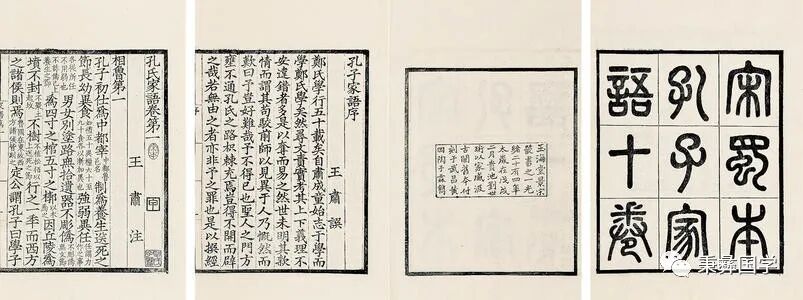 宋蜀本
孔子家
語十卷
玉海堂景宋
叢書之一光
緒二十有四年
太歲在戊戌
二月貴池劉世
珩以家臧汲
古閣舊本付
刻于武昌黃
岡陶子霖鐫
孔子家語序
王肅譔
鄭氏學行五十載矣自肅成童始志于學而
學鄭氏學矣然尋文責實考其上下義理不
安違錯者多是以奪而易之然世未明其款
情而謂其苟駮前師以見異于人乃慨然而
歎曰予豈好難哉予不得已也聖人之門方
壅不通孔氏之路枳棘充焉豈得不開而辟
之哉若無由之者亦非予之罪也是以撰經
孔氏家語卷第一
王肅注
相魯第一
孔子初仕為中都宰 制為養生送死之
節長幼異食 強弱異任
男女別塗路無拾遺器不彫偽
為四寸之棺五寸之椁 因丘陵為
墳不封 不樹 行之一年而西方
之諸侯則焉 定公謂孔子曰學子
秉彝国学